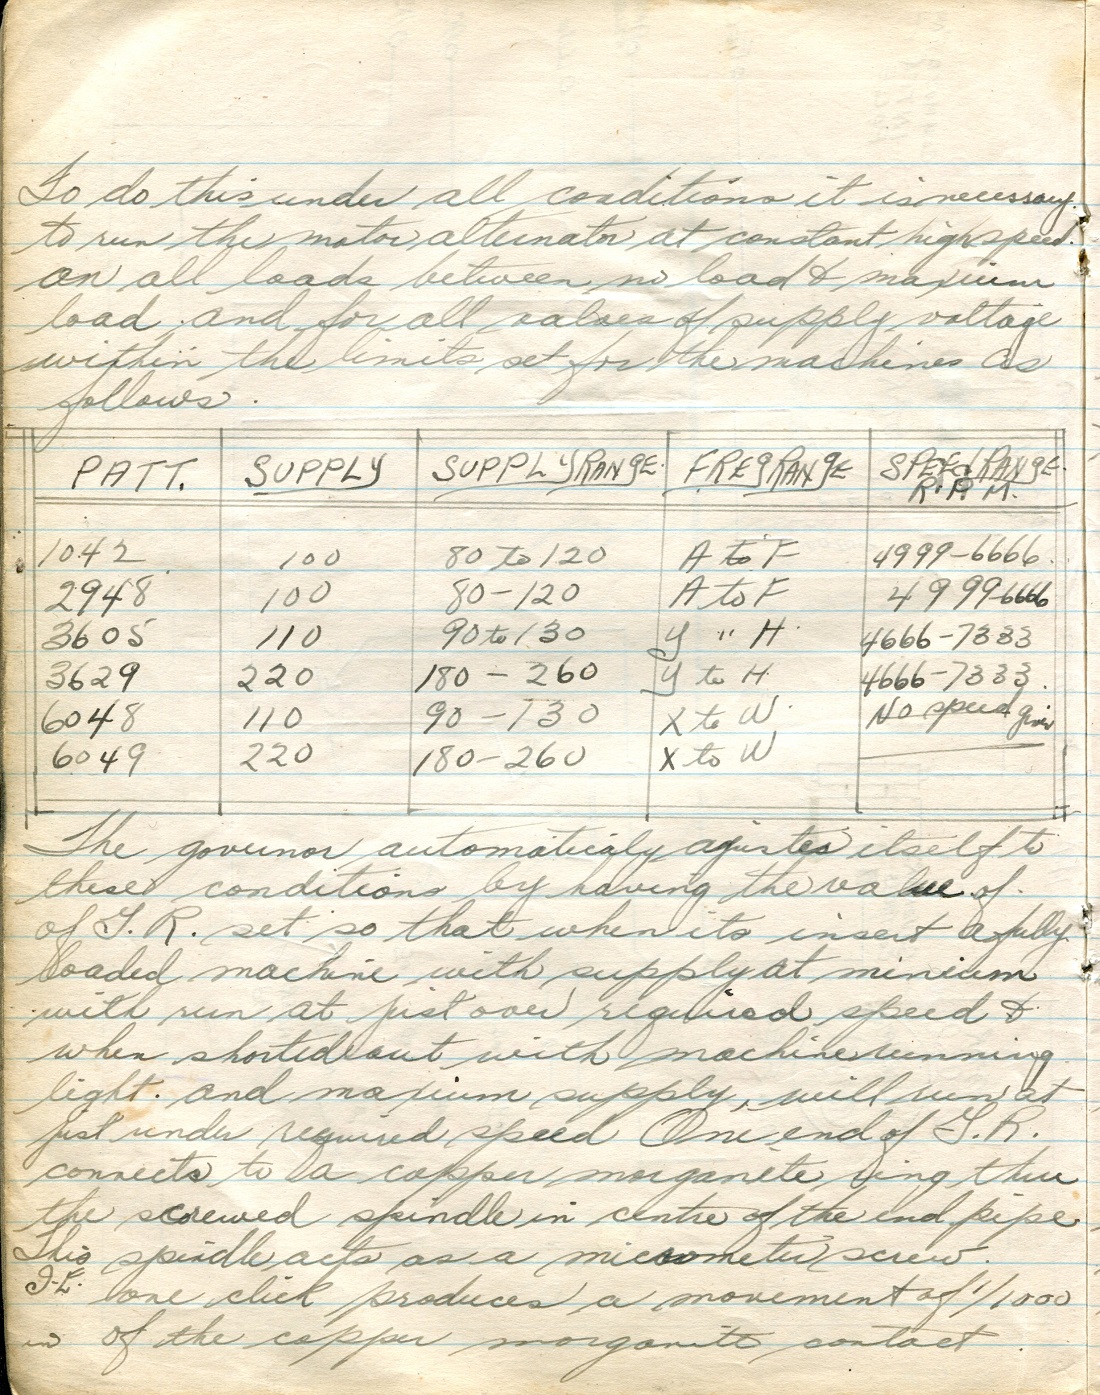 To do this under all conditions it is necessary.
to run the motor alternator at constant high speed.
on all loads between no load & maxium
load. and for all values of supply voltage
within the limits set for the machines as
follows.
PATT. SUPPLY SUPPLY RANGE. FREQ RANGE SPEED RANGE.
R.P.M.
1042 100 80 to 120 A to F 4999-6666.
2948 100 80-120 A to F 4999-6666
3605 110 90 to 130 Y " H. 4666-7333
3629 220 180 - 260 Y to H 4666-7333.
6048 110 90 - 130 X to W. No speed given
6049 220 180-260 X to W
The governor automaticaly ajustes itself to
these conditions by having the value of.
of G.R. set so that when its insert a fully
loaded machine with supply at minium
with run at just over required speed &
when shorted out with machine running
light. and maxium supply, will run at
just under required speed One end of G.R.
connects to a copper morganite ring thru
the screwed spindle in centre of the end pipe.
This spindle acts as a micrometer screw.
I.E. one click produces a movement of 1/1000
in of the copper morganite contact.